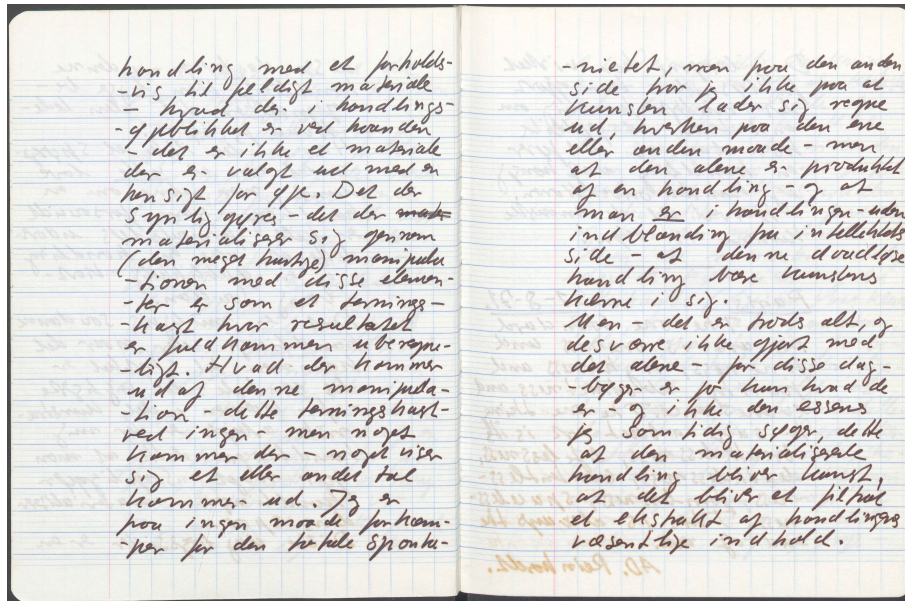 handling med et forholds-
-vis tilfældigt materiale
- hvad der i handlings-
-øjeblikket er ved haanden
- det er ikke et materiale
der er valgt ud med en
hensigt for øje. Det der
synliggøres - det der
materialiserer sig gennem
(den meget hurtige) manipula
-tionen med disse elemen-
-ter er som et ternings-
-kast hvor resultatet
er fuldkommen uberegne-
-ligt. Hvad der kommer
ud af denne manipula-
-tion - dette terningskast -
ved ingen - men noget
kommer der - noget viser
sig et eller andet tal
kommer ud. Jeg er
paa ingen maade forkæm-
-per for den totale sponta-
-nietet, men paa den anden
side tror jeg ikke paa at
kunsten lader sig regne
ud, hverken paa den ene
eller anden maade - men
at den alene er produktet
af en handling - og at
man er i handlingen - uden
indblanding fra intellektets
side - at denne dvaeløse
handling bære kunstens
kærne i sig.
Men - det er trods alt, og
desværre ikke gjort med
det alene - for disse dag-
-bøger er jo kun hvad de
er - og ikke den essens
jeg samtidig søger, dette
at den materialiserede
handling bliver kunst,
at det bliver et filtrat
et ekstrakt af handlingens
væsentlige indhold.
AD. Reinhardt.